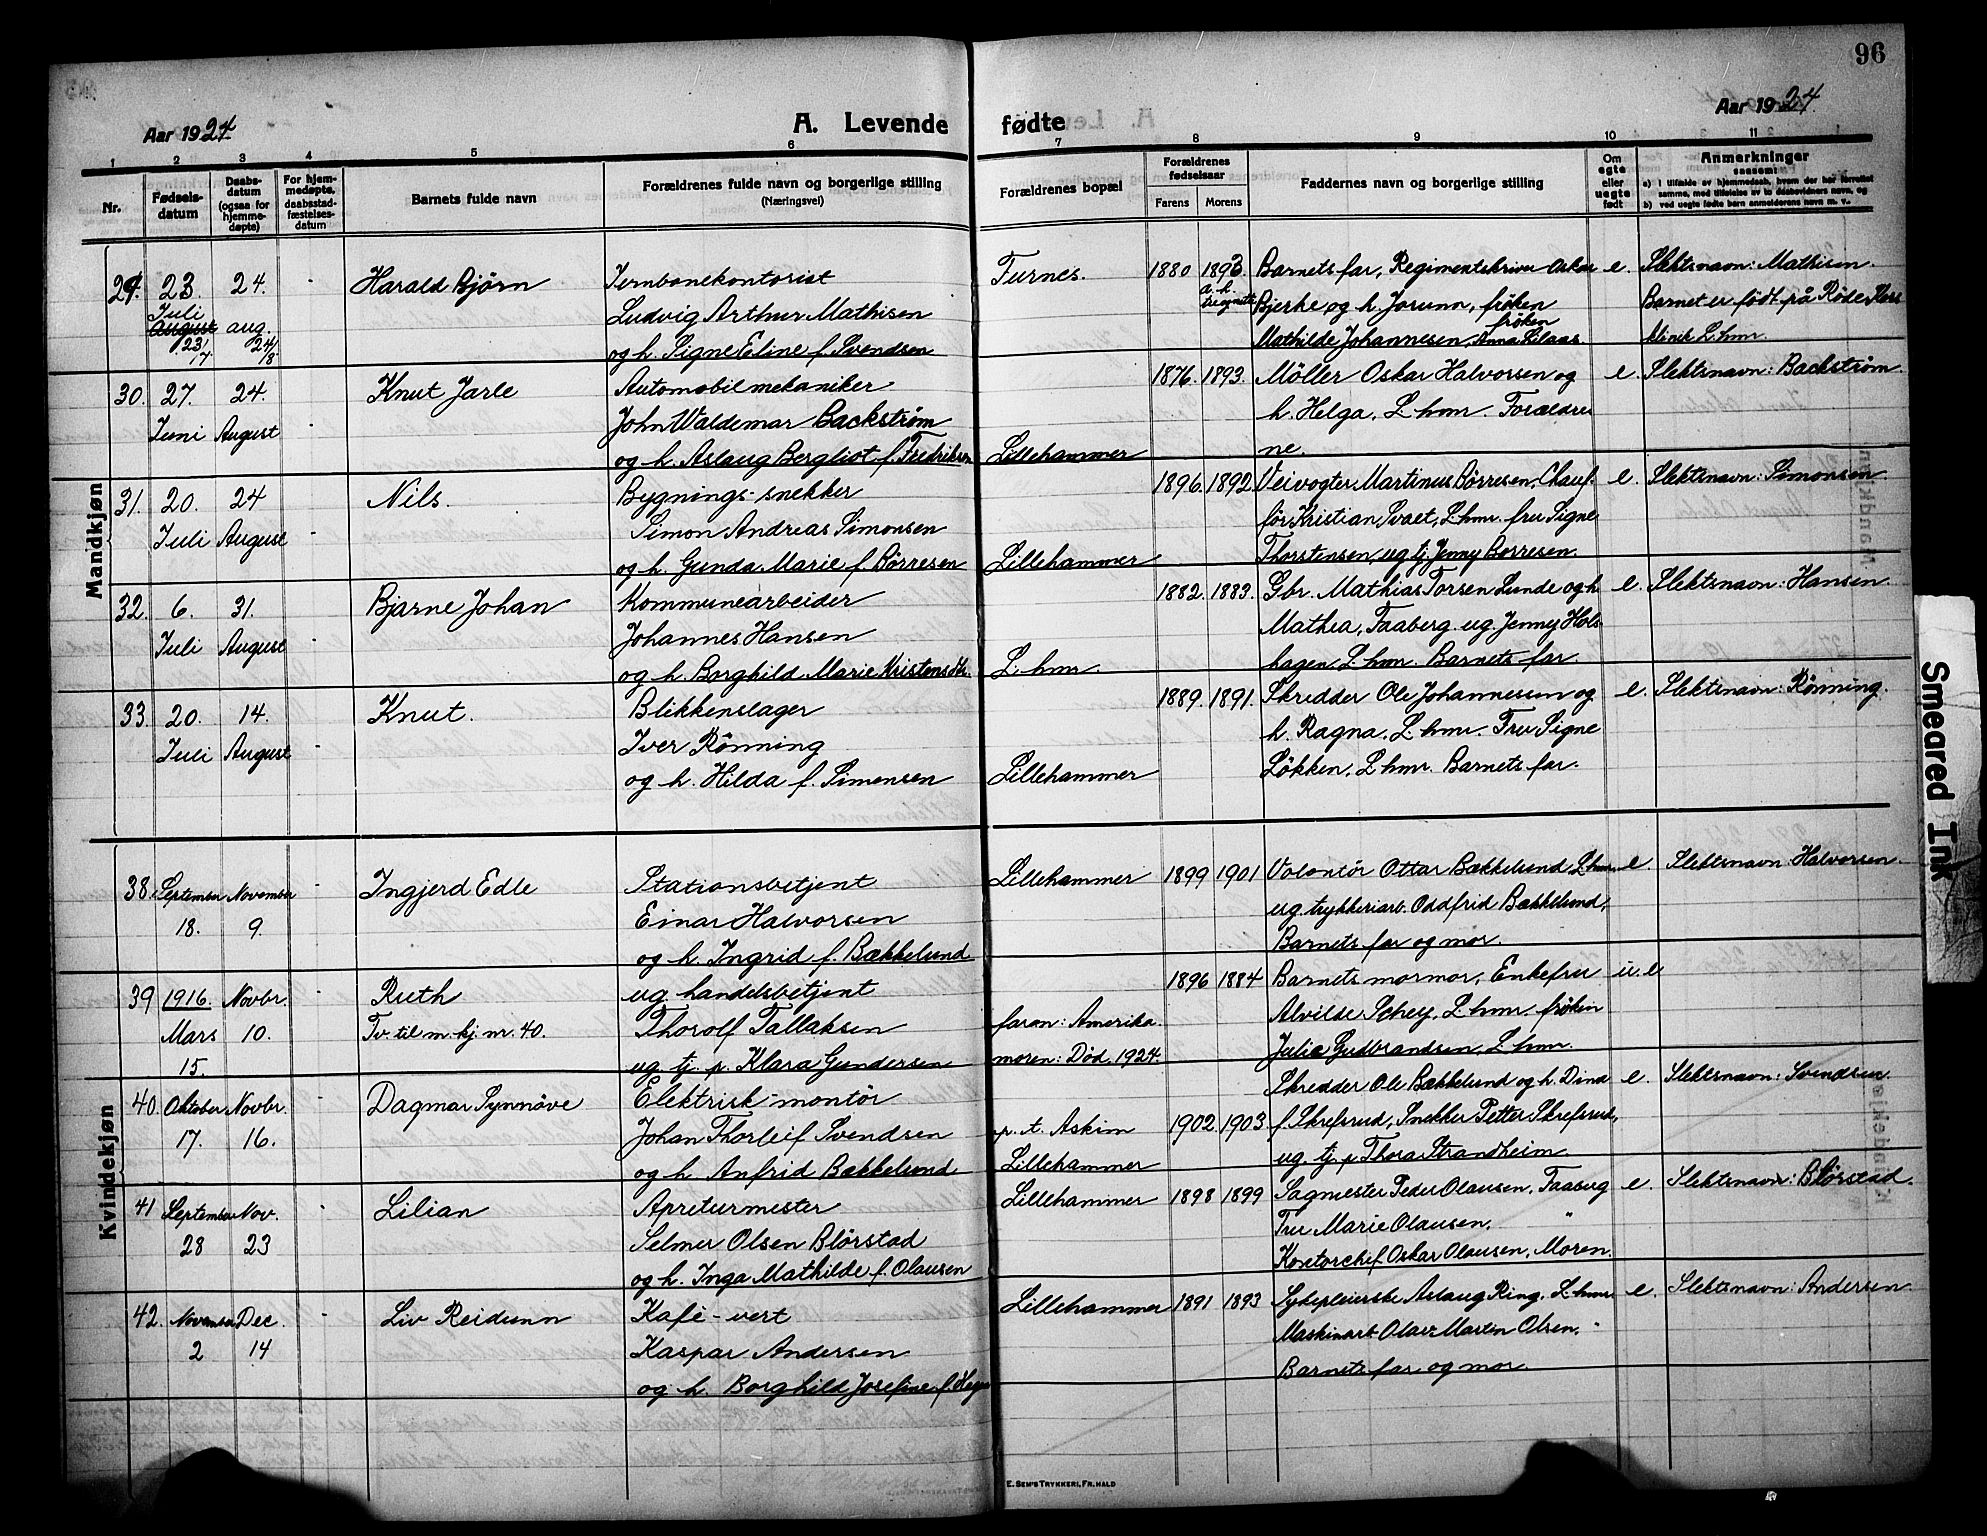 96
Aar 1924
A. Levende fødte
Aar 1924
1 2 3 4 5 6 7 8 9 10 11
Nr.
Fødsels-
datum
Daabs-
datum
(ogsaa for
hjemme-
døpte)
For hjem-
medøpte,
daabsstad-
fæstelses-
datum
Barnets fulde navn
Forældrenes fulde navn og borgerlige stilling
(Næringsvei)
Forældrenes bopæl
Forældrenes
fødselsaar
Farens Morens
Faddernes navn og borgerlige stilling
Om
egte
eller
uegte
født
Anmerkninger
saasom:
a) i tilfælde av hjemmedaab, hvem der har forrettet
samme, med tilføielse av to daabsvidners navn, og
b) ved uegte fødte barn anmelderens navn m. v.
Mandkjøn
29. 23. 24. - Harald Bjørn Jernbanekontorist Furnes. 1880 1893 Barnets far, Regimentskriver Oskar e. Slektsnavn: Mathisen.
Juli
August aug. Ludvig Arthur Mathisen Bjerke og h. Jorunn, frøken Barnet er født på Røde Kors
23/7 24/8 og h. Signe Eline f. Svendsen Mathilde Johannesen, frøken Anna Lilaas. klinik L.hmr.
30. 27. 24. Knut Jarle Automobilmekaniker 1876. 1893. Møller Oskar Halvorsen og e. Slektsnavn: Backstrøm
Juni August - John Waldemar Backstrøm h. Helga, L.hmr. Forældre
og h. Aslaug Bergliot f. Fredriksen Lillehammer ne.
31. 20. 24 Nils. Bygnings-snekker 1896. 1892. Veivogter Martinus Børresen, Chauf- e. Slektsnavn: Simonsen
Juli August - Simon Andreas Simonsen før Kristian Svaet, L.hmr. fru Signe
og h. Gunda Marie f. Børresen Lillehammer Thorstensen, ug. tj. Jenny Børresen.
32. 6. 31. Bjarne Johan Kommunearbeider 1882. 1883. Gbr. Mathias Torsen Lunde og h. e. Slektsnavn: Hansen
Juli August - Johannes Hansen Mathea, Faaberg. ug. Jenny Hols-
og h. Borghild Marie Kristensdtr. L.hmr. hagen L.hmr. Barnets far.
33. 20. 14. Knut. Blikkenslager 1889. 1891. Skredder Ole Johannessen og e. Slektsnavn: Rønning.
Juli August - Iver Rønning h. Ragna, L.hmr. Fru Signe
og h. Hilda f. Simensen Lillehammer Løkken, L.hmr. Barnets far.
Kvindekjøn
38. September November - Ingjerd Edle Stationsbetjent Lillehammer 1899 1901 Volontør Ottar Bækkelund L.hmr. e. Slektsnavn: Halvorsen
18. 9. Einar Halvorsen ug. trykkeriarb. Oddfrid Bækkelund,
og h. Ingrid f. Bækkelund Barnets far og mor.
39 1916 Novbr. - Ruth ug. handelsbetjent 1896 1884 Barnets mormor, Enkefru u. e
Mars 10. Tv. til m. kj. nr. 40. Thorolf Tallaksen faren: Amerika. Alvilde Schey, L.hmr. frøken
15. ug. tj. p. Klara Gundersen moren: Død. 1924. Julie Gudbrandsen, L.hmr.
40. Oktober Novbr. - Dagmar Synnøve Elektrisk-montør Skredder Ole Bækkelund og h. Dina e. Slektsnavn: Svendsen.
17. 16. Johan Thorleif Svendsen p. t. Askim 1902. 1903 f. Skrefsrud, Snekker Petter Skrefsrud,
og h. Anfrid Bækkelund Lillehammer ug. tj. p. Thora Strandheim.
41 September Nov. - Lilian Apreturmester Lillehammer 1898 1899 Sagmester Peder Olausen, Faaberg e. Slektsnavn: Blørstad.
28 23 Selmer Olsen Blørstad Fru Marie Olausen, "
og h. Inga Mathilde f. Olausen Kontorchef Oskar Olausen, Moren.
42. November Dec. - Liv Reidunn Kafé-vert Lillehammer 1891 1893 Sykepleierske Aslaug Ring, L.hmr. e. Slektsnavn: Andersen
2 14 Kaspar Andersen Maskinarb. Olav Martin Olsen, "
og h. Borghild Josefine f. Barnets far og mor.
E. SEM'S TRYKKERI, FR.HALD
Smeared Ink